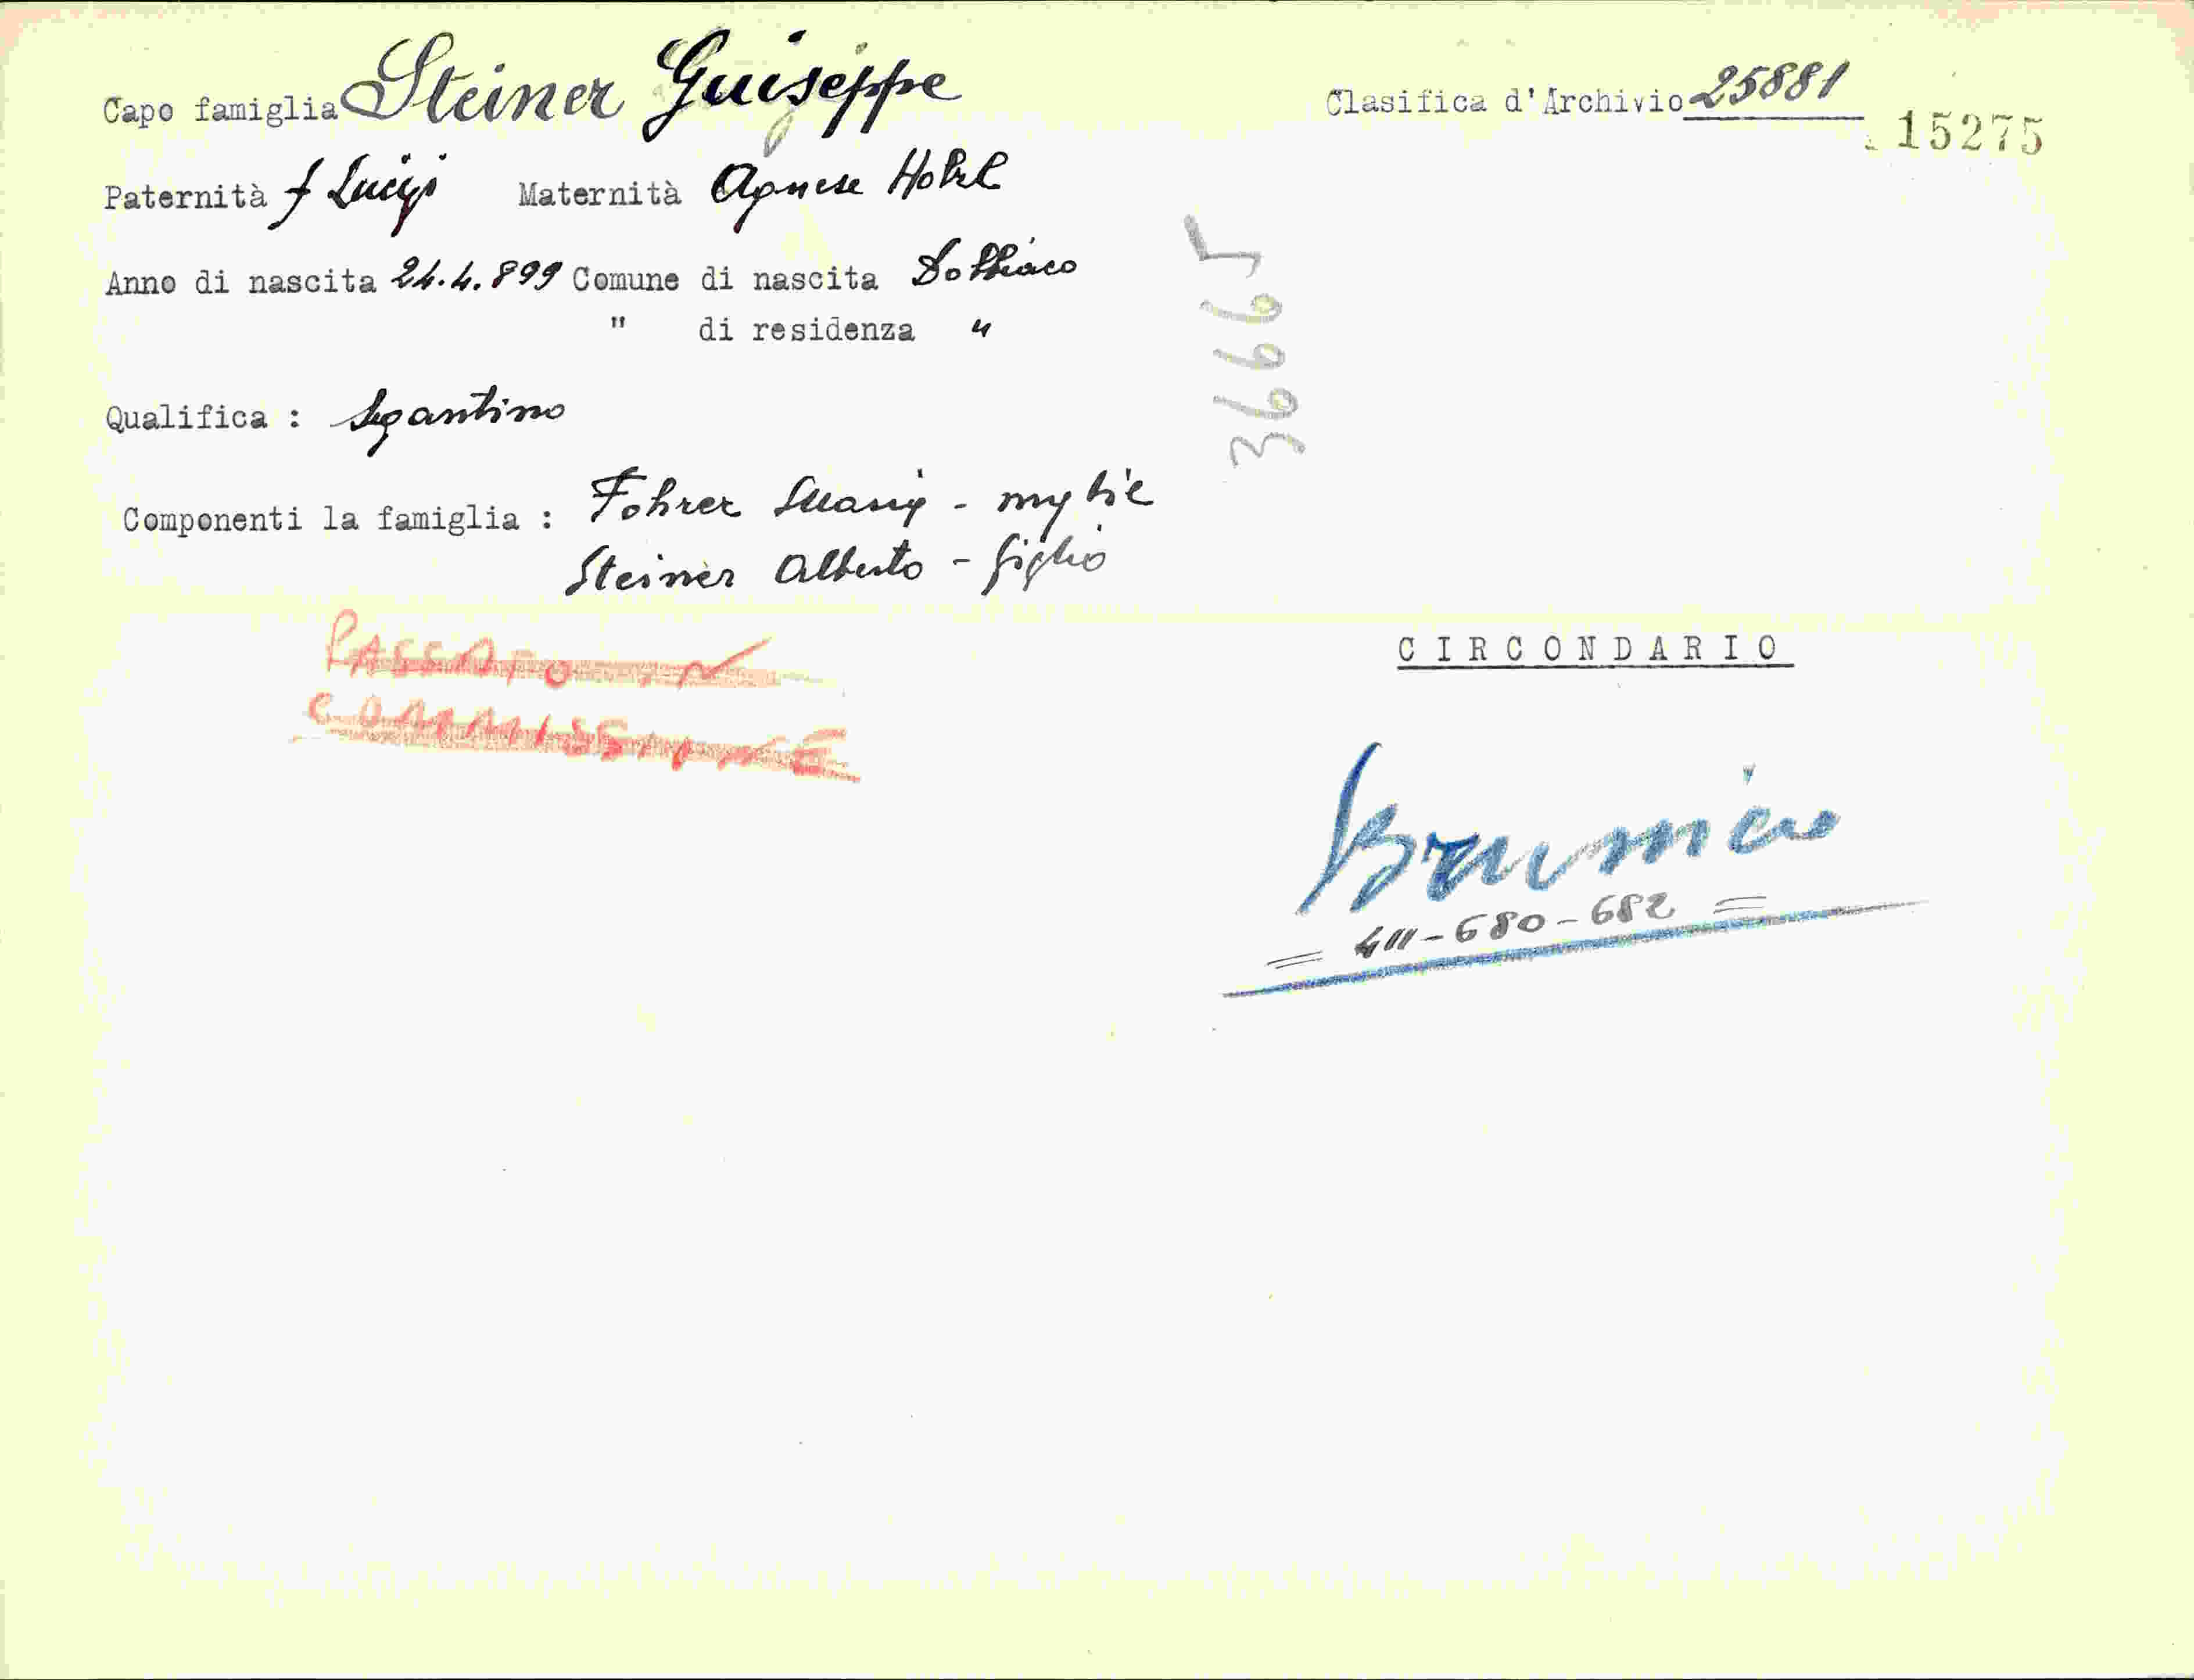 Capo famiglia Steiner Guiseppe
Clasifica d'Archivio 25881
15275
Paternità f Luigi Maternità Agnese
Anno di nascita 24.4.899 Comune di nascita Dobbiaco
" di residenza "
36665
Qualifica : segantino
Componenti la famiglia : Fohrer Maria - moglie
Steiner Alberto - figlio
PASSATO IN
COMMISSIONE
CIRCONDARIO
Brunico
= 411-680-682 =